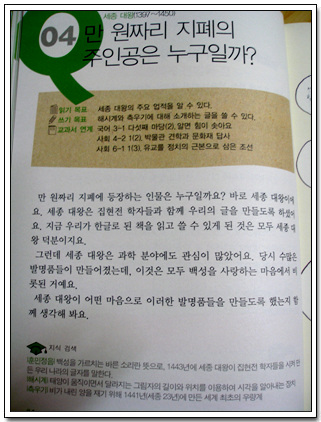 세종 대왕(1397~1450)
Q
04 만 원짜리 지폐의
주인공은 누구일까?
읽기 목표 세종 대왕의 주요 업적을 알 수 있다.
쓰기 목표 해시계와 측우기에 대해 소개하는 글을 쓸 수 있다.
교과서 연계 국어 3-1 다섯째 마당(2). 알면 힘이 솟아요
사회 4-2 1(2). 박물관 견학과 문화재 답사
사회 6-1 1(3). 유교를 정치의 근본으로 삼은 조선
만 원짜리 지폐에 등장하는 인물은 누구일까요? 바로 세종 대왕이에
요. 세종 대왕은 집현전 학자들과 함께 우리의 글을 만들도록 하셨어
요. 지금 우리가 한글로 된 책을 읽고 쓸 수 있게 된 것은 모두 세종 대
왕 덕분이지요.
그런데 세종 대왕은 과학 분야에도 관심이 많았어요. 당시 수많은
발명품들이 만들어졌는데, 이것은 모두 백성을 사랑하는 마음에서 비
롯된 거예요.
세종 대왕이 어떤 마음으로 이러한 발명품들을 만들도록 했는지 함
께 생각해 봐요.
지식 검색
(훈민정음) 백성을 가르치는 바른 소리란 뜻으로, 1443년에 세종 대왕이 집현전 학자들을 시켜 만
든 우리 나라의 글자를 말한다.
(해시계) 태양이 움직이면서 달라지는 그림자의 길이와 위치를 이용하여 시각을 알아내는 장치
(측우기) 비가 내린 양을 재기 위해 1441년(세종 23년)에 만든 세계 최초의 우량계